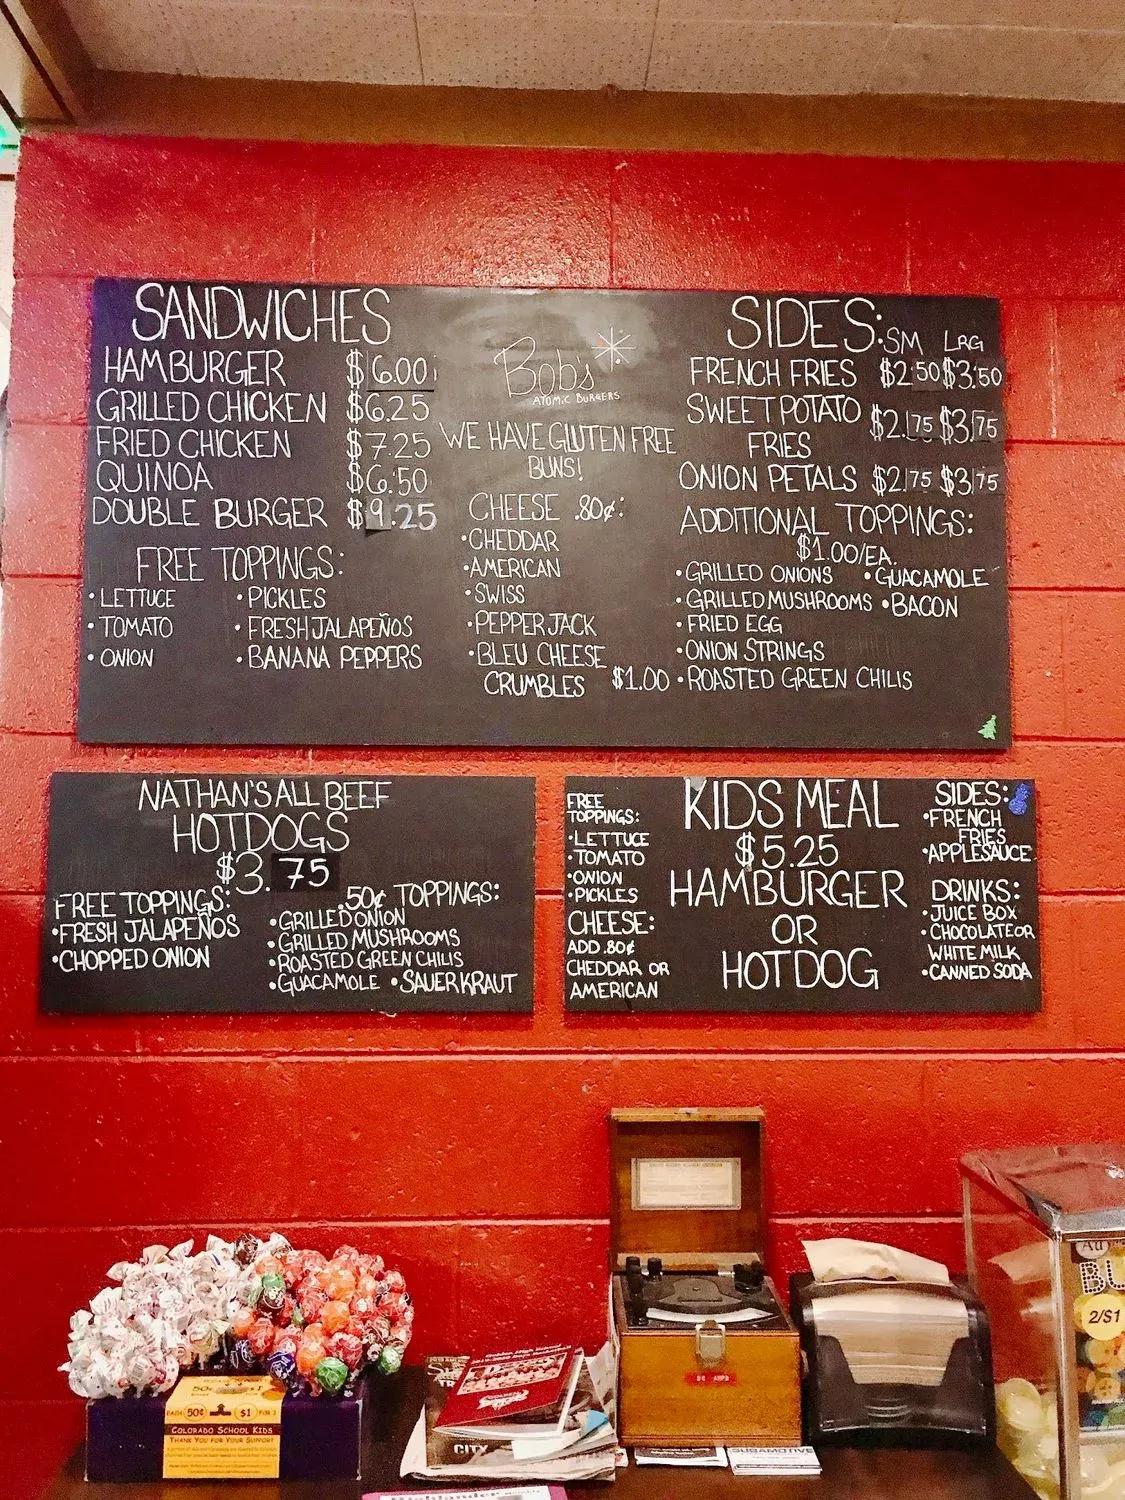 SANDWICHES
HAMBURGER $6.00
GRILLED CHICKEN $6.25
FRIED CHICKEN $7.25
QUINOA $6.50
DOUBLE BURGER $9.25
FREE TOPPINGS:
• LETTUCE
• TOMATO
• ONION
• PICKLES
• FRESH JALAPEÑOS
• BANANA PEPPERS
Bob's
ATOMIC BURGERS
WE HAVE GLUTEN FREE
BUNS!
CHEESE .80¢:
• CHEDDAR
• AMERICAN
• SWISS
• PEPPER JACK
• BLEU CHEESE
CRUMBLES $1.00
SIDES: SM LRG
FRENCH FRIES $2.50 $3.50
SWEET POTATO
FRIES $2.75 $3.75
ONION PETALS $2.75 $3.75
ADDITIONAL TOPPINGS:
$1.00/EA.
• GRILLED ONIONS • GUACAMOLE
• GRILLED MUSHROOMS • BACON
• FRIED EGG
• ONION STRINGS
• ROASTED GREEN CHILIS
NATHAN'S ALL BEEF
HOTDOGS
$3.75
FREE TOPPINGS:
• FRESH JALAPEÑOS
• CHOPPED ONION
.50¢ TOPPINGS:
• GRILLED ONION
• GRILLED MUSHROOMS
• ROASTED GREEN CHILIS
• GUACAMOLE • SAUERKRAUT
FREE
TOPPINGS:
• LETTUCE
• TOMATO
• ONION
• PICKLES
CHEESE:
ADD .80¢
CHEDDAR OR
AMERICAN
KIDS MEAL
$5.25
HAMBURGER
OR
HOTDOG
SIDES:
• FRENCH
FRIES
• APPLESAUCE
DRINKS:
• JUICE BOX
• CHOCOLATE OR
WHITE MILK
• CANNED SODA
50¢
EACH 50¢ $1 FOR
COLORADO SCHOOL KIDS
THANK YOU FOR YOUR SUPPORT
Golden High School
CITY
SUBAMOTIVE
BU
2/$1